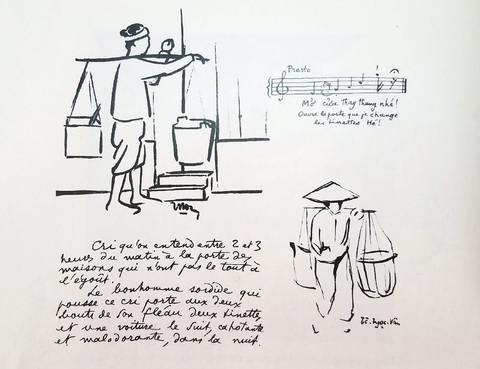 Presto
Mở cửa thay thùng nhé!
Ouvre la porte que je change
les tinettes Hé!
Cri qu'on entend entre 2 et 3
heures du matin à la porte des
maisons qui n'ont pas le tout à
l'égout.
Le bonhomme sordide qui
pousse ce cri porte aux deux
bouts de son fléau deux tinettes,
et une voiture le suit, cahotante
et malodorante, dans la nuit.
Tô-Ngọc-Vân